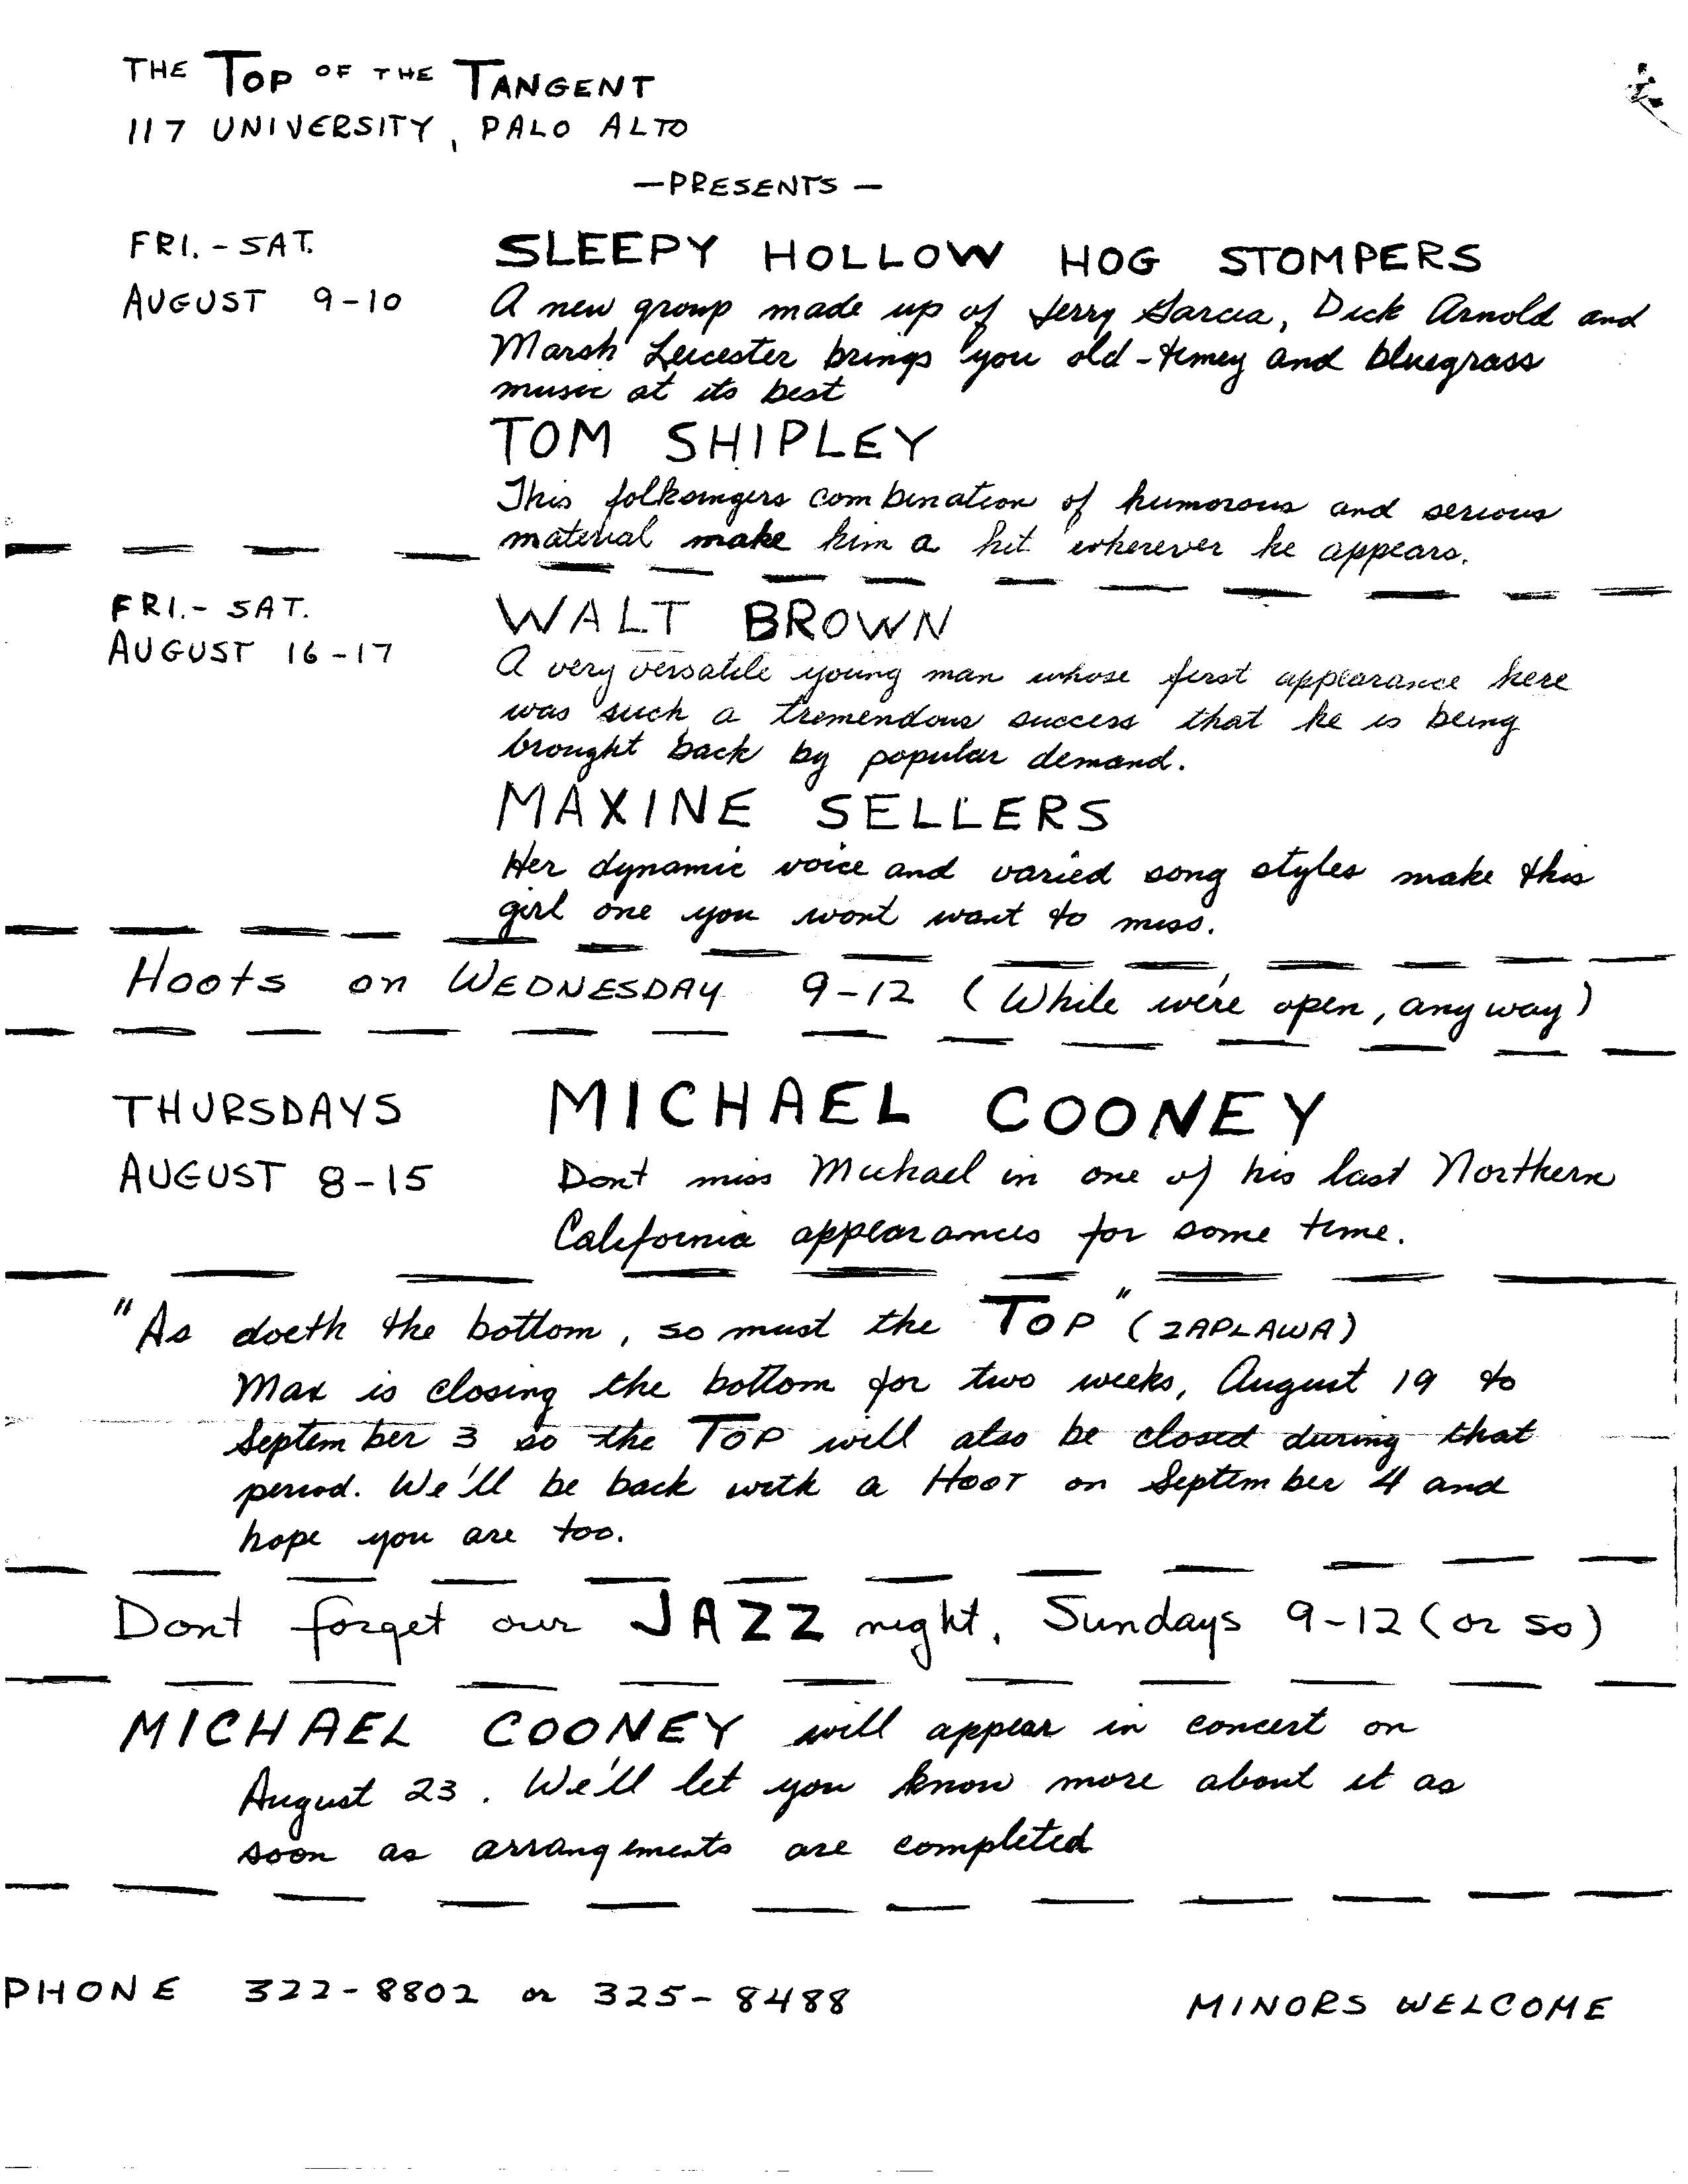 THE TOP OF THE TANGENT
117 UNIVERSITY, PALO ALTO
—PRESENTS—
FRI. - SAT.
AUGUST 9-10
SLEEPY HOLLOW HOG STOMPERS
A new group made up of Jerry Garcia, Dick Arnold and
Marsh Leicester brings you old-timey and bluegrass
music at its best
TOM SHIPLEY
This folksingers combination of humorous and serious
material make him a hit wherever he appears.
FRI. - SAT.
AUGUST 16-17
WALT BROWN
A very versatile young man whose first appearance here
was such a tremendous success that he is being
brought back by popular demand.
MAXINE SELLERS
Her dynamic voice and varied song styles make this
girl one you wont want to miss.
Hoots on WEDNESDAY 9-12 (While we're open, anyway)
THURSDAYS
AUGUST 8-15
MICHAEL COONEY
Dont miss Michael in one of his last Northern
California appearances for some time.
"As doeth the bottom, so must the TOP" (ZAPLAWA)
Max is closing the bottom for two weeks, August 19 to
September 3 so the TOP will also be closed during that
period. We'll be back with a HOOT on September 4 and
hope you are too.
Dont forget our JAZZ night, Sundays 9-12 (or so)
MICHAEL COONEY will appear in concert on
August 23. We'll let you know more about it as
soon as arrangements are completed
PHONE 322-8802 or 325-8488
MINORS WELCOME